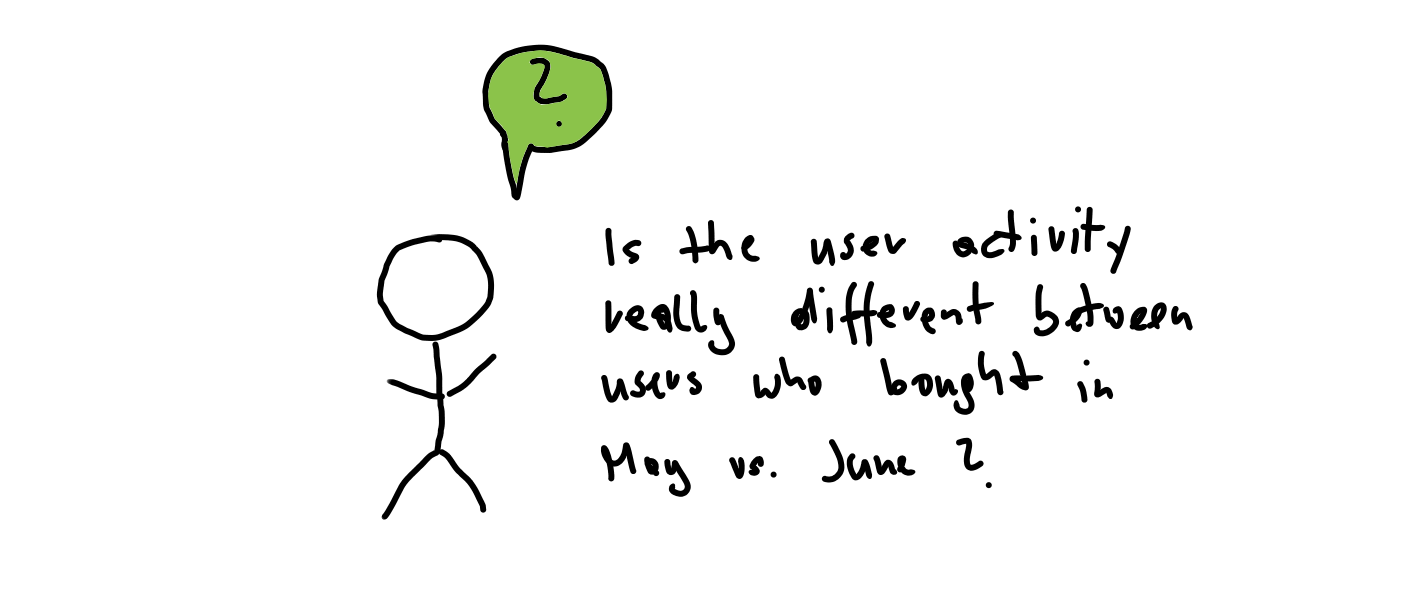 ?
Is the user activity
really different between
users who bought in
May vs. June ?